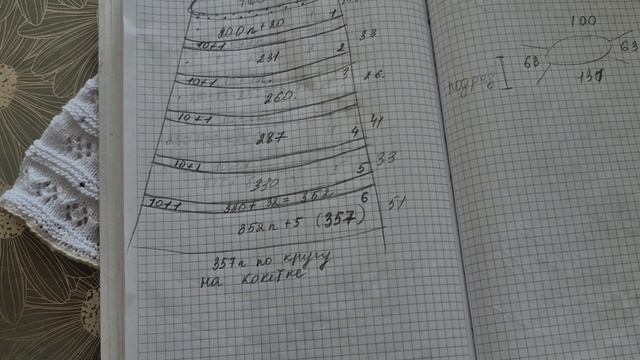 200п+20 1
10+1 33
231 2
10+1 3 26
260.
10+1 41
287 4
10+1 33
330 5
10+1 320+32=352 6 51
352п+5 (357)
357п по кругу
на кокетке
100
63 63
131
подрез